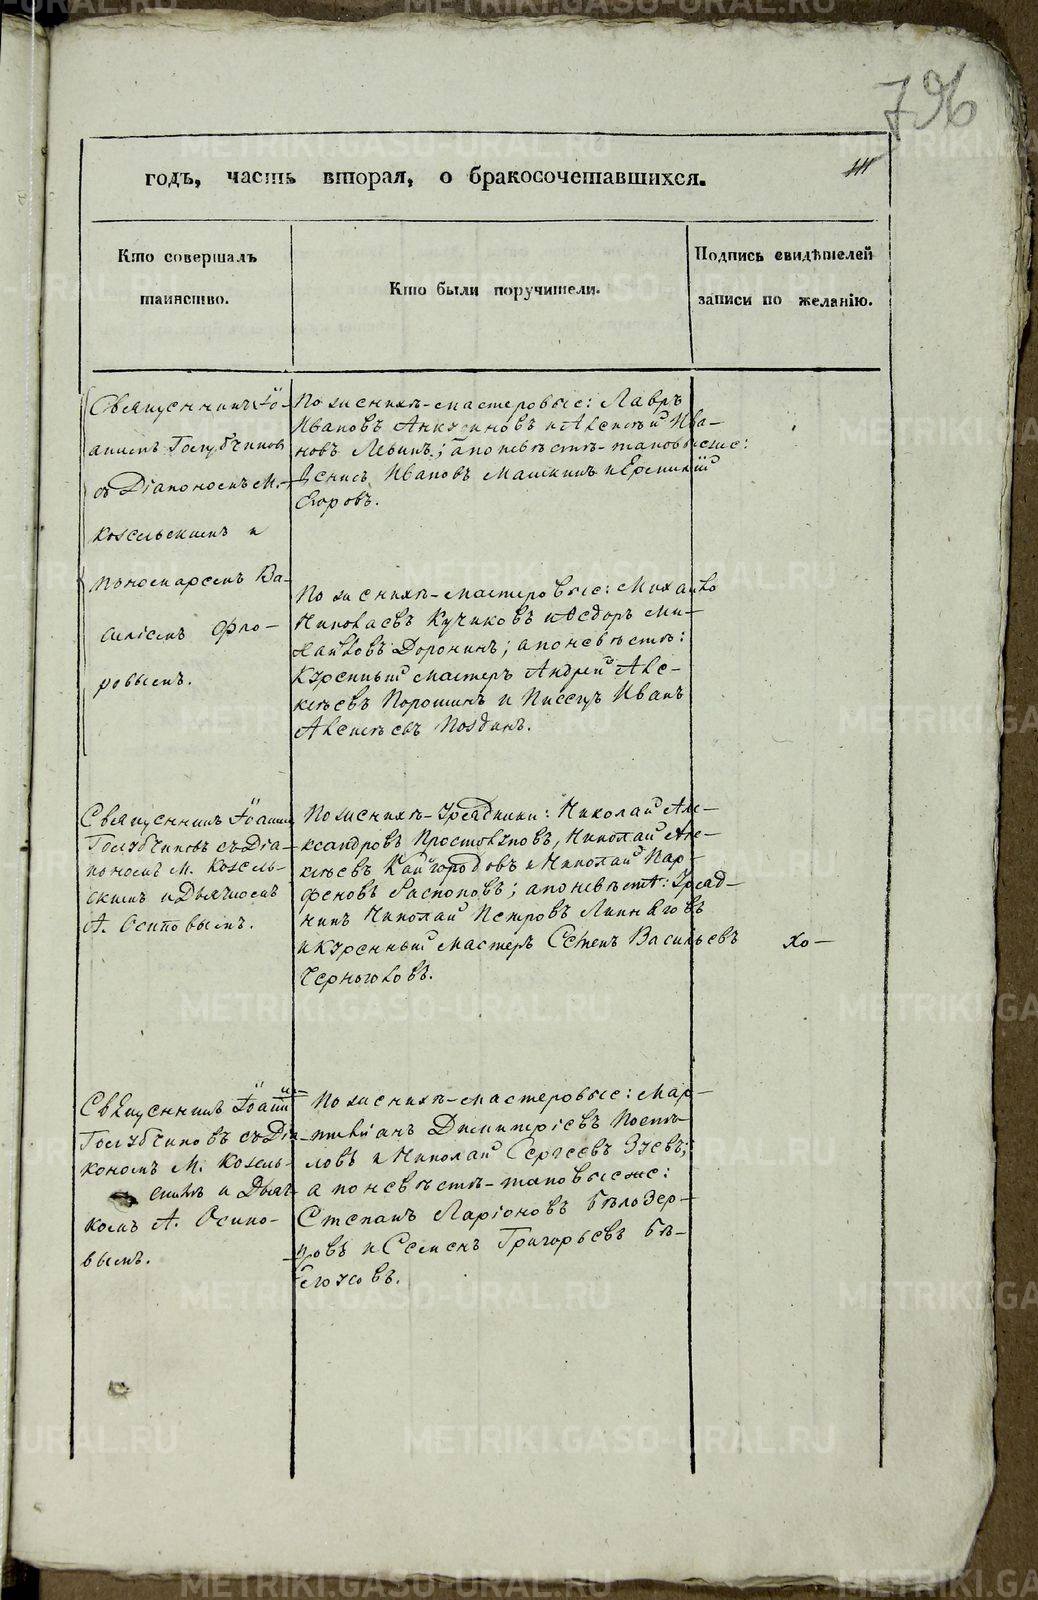 796
годъ, часть вторая, о бракосочетавшихся.
Кто совершалъ
таинство.
Кто были поручители.
Подпись свидѣтелей
записи по желанію.
Священникъ Іо-
анмъ Голубчиковъ
съ Діакономъ М.
Козельскимъ и
Пономаремъ Ва-
силіемъ Фло-
ровымъ.
По женихѣ-мастеровые: Лавръ
Ивановъ и Алексѣй Ива-
новъ Левинъ; а по невѣстѣ-таковыеже:
Денисъ Ивановъ Машкинъ и Еремѣй
Егоровъ.
По женихѣ-мастеровые: Михайло
Николаевъ Кучиковъ и Ѳедоръ Ми-
хайловъ Доронинъ; а по невѣстѣ:
Куренный мастеръ Андрей Але-
ксѣевъ Порошинъ и Писецъ Иванъ
Алексѣевъ Поздинъ.
Священникъ Іоаннъ
Голубчиковъ съ Діа-
кономъ М. Козель-
скимъ и Дьячкомъ
А. Осиповымъ.
По женихѣ-Урядники: Николай Але-
ксандровъ Простолуповъ, Николай Але-
ксѣевъ Кайгородовъ и Николай Пар-
феновъ Распоповъ; а по невѣстѣ: Уряд-
никъ Николай Петровъ
и Куренный мастеръ Семенъ Васильевъ
Черноголовъ.
хо-
Священникъ Іоаннъ
Голубчиковъ съ Діа-
кономъ М. Козель-
скимъ и Дьяч-
комъ А. Осипо-
вымъ.
По женихѣ-мастеровые: Мар-
тиніанъ Димитріевъ
и Николай Сергѣевъ Зуевъ;
а по невѣстѣ-таковыеже:
Степанъ Ларіоновъ Бѣлозер-
цовъ и Семенъ Григорьевъ Бѣ-
лоусовъ.
METRIKI.GASO-URAL.RU